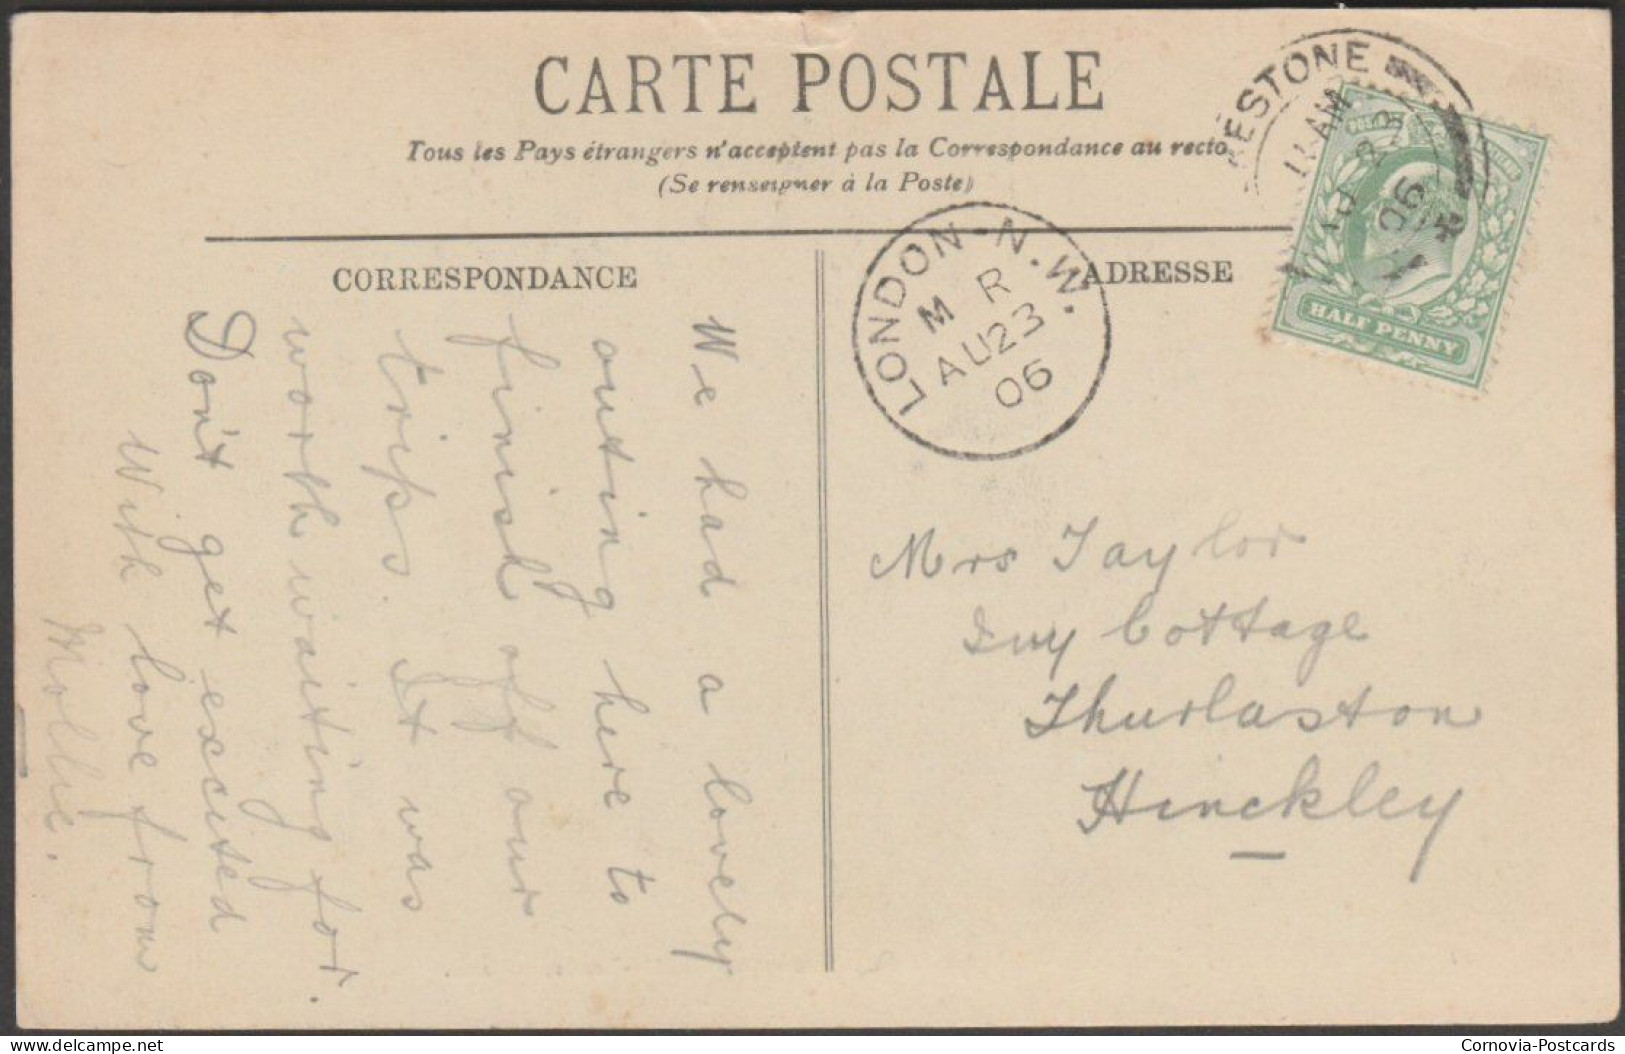 CARTE POSTALE
Tous les Pays étrangers n'acceptent pas la Correspondance au recto
(Se renseigner à la Poste)
CORRESPONDANCE
ADRESSE
ESTONE
11 AM
AU 22
06
HALF PENNY
LONDON-N.W.
M R
AU 23
06
We had a lovely
outing here to
finish off our
trips. It was
worth waiting for.
Don't get excited
With love from
Mollie.
Mrs Taylor
Ivy Cottage
Thurlaston
Hinckley
delcampe.net
Cornovia-Postcards